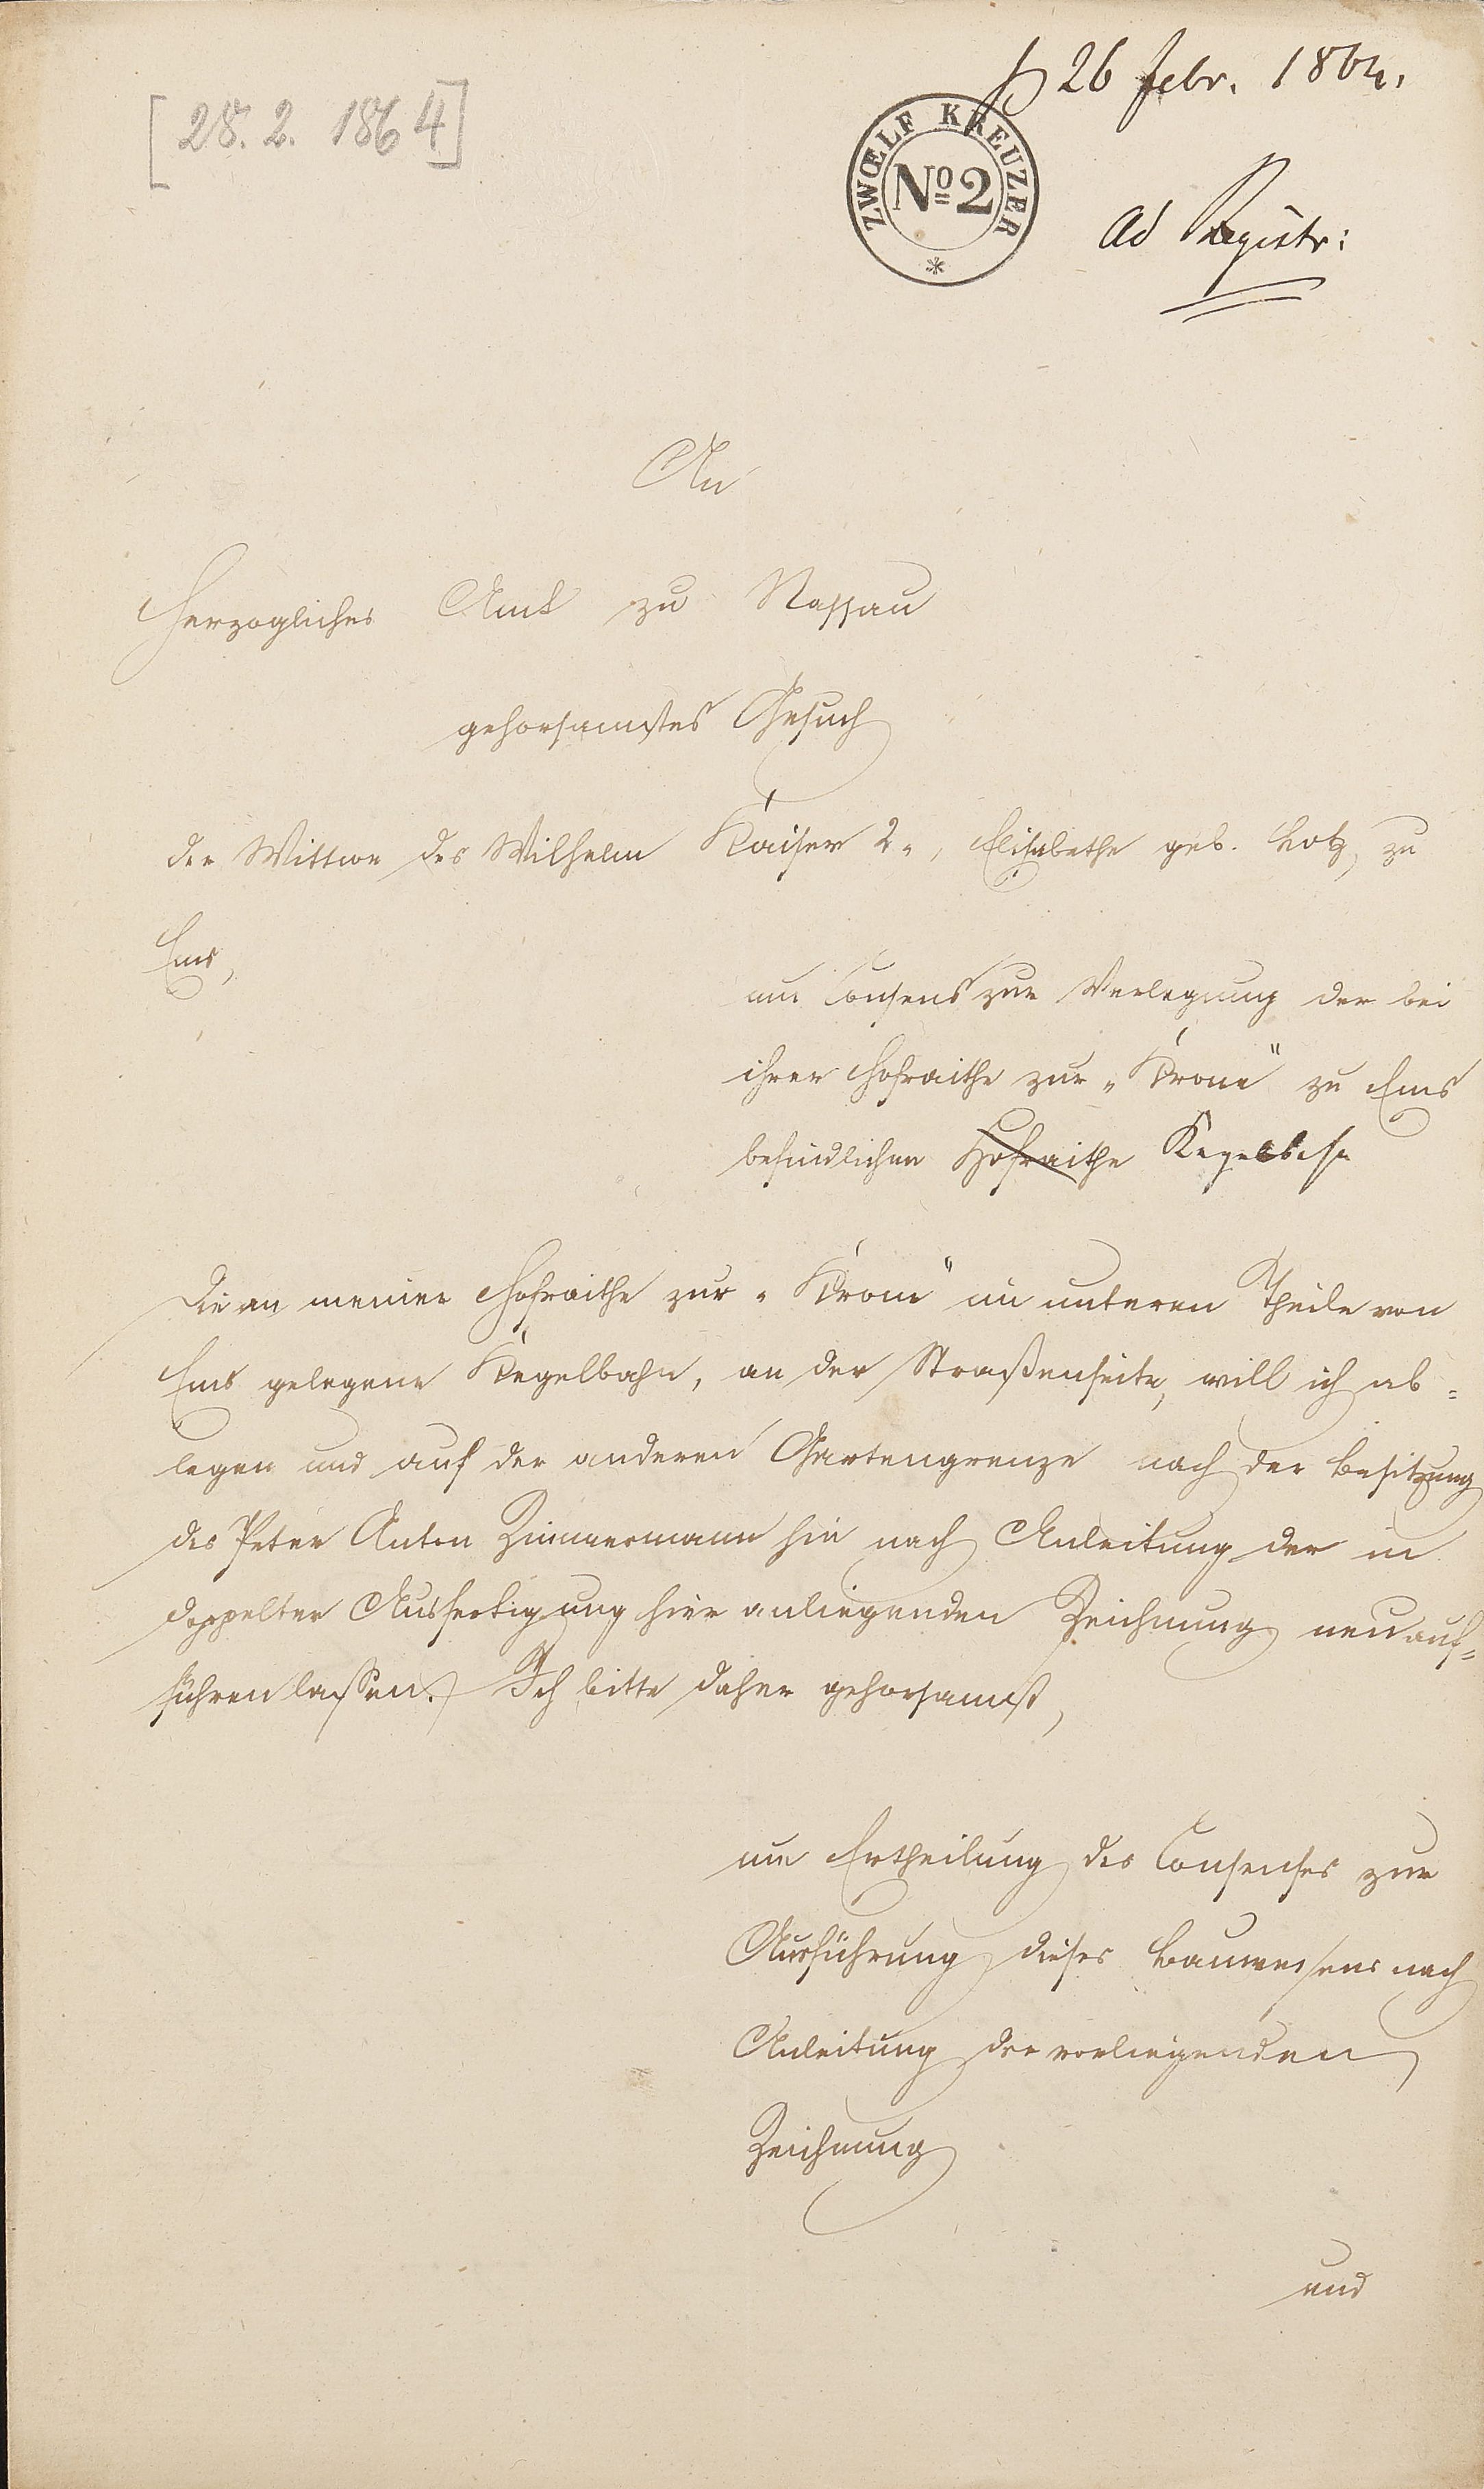 [28. 2. 1864]
26 febr. 1864.
ZWŒLF KREUZER
No 2
ad Registr:
An
Herzogliches Amt zu Nassau
gehorsamstes Gesuch
der Wittwe des Wilhelm Kaiser 2., Elisabethe geb. Lotz, zu
Ems,
um Consens zur Verlegung der bei
ihrer Hofraithe zur „Krone" zu Ems
befindlichen Hofraithe Kegelbahn
Die an meiner Hofraithe zur „Krone" im unteren Theile von
Ems gelegene Kegelbahn, an der Straßenseite, will ich ab=
legen und auf der anderen Gartengrenze nach der Besitzung
des Peter Anton Zimmermann hin nach Anleitung der in
doppelter Ausfertigung hier anliegenden Zeichnung neu auf=
führen lassen. Ich bitte daher gehorsamst,
um Ertheilung des Consenses zur
Ausführung dieses Bauwesens nach
Anleitung der vorliegenden
Zeichnung
und